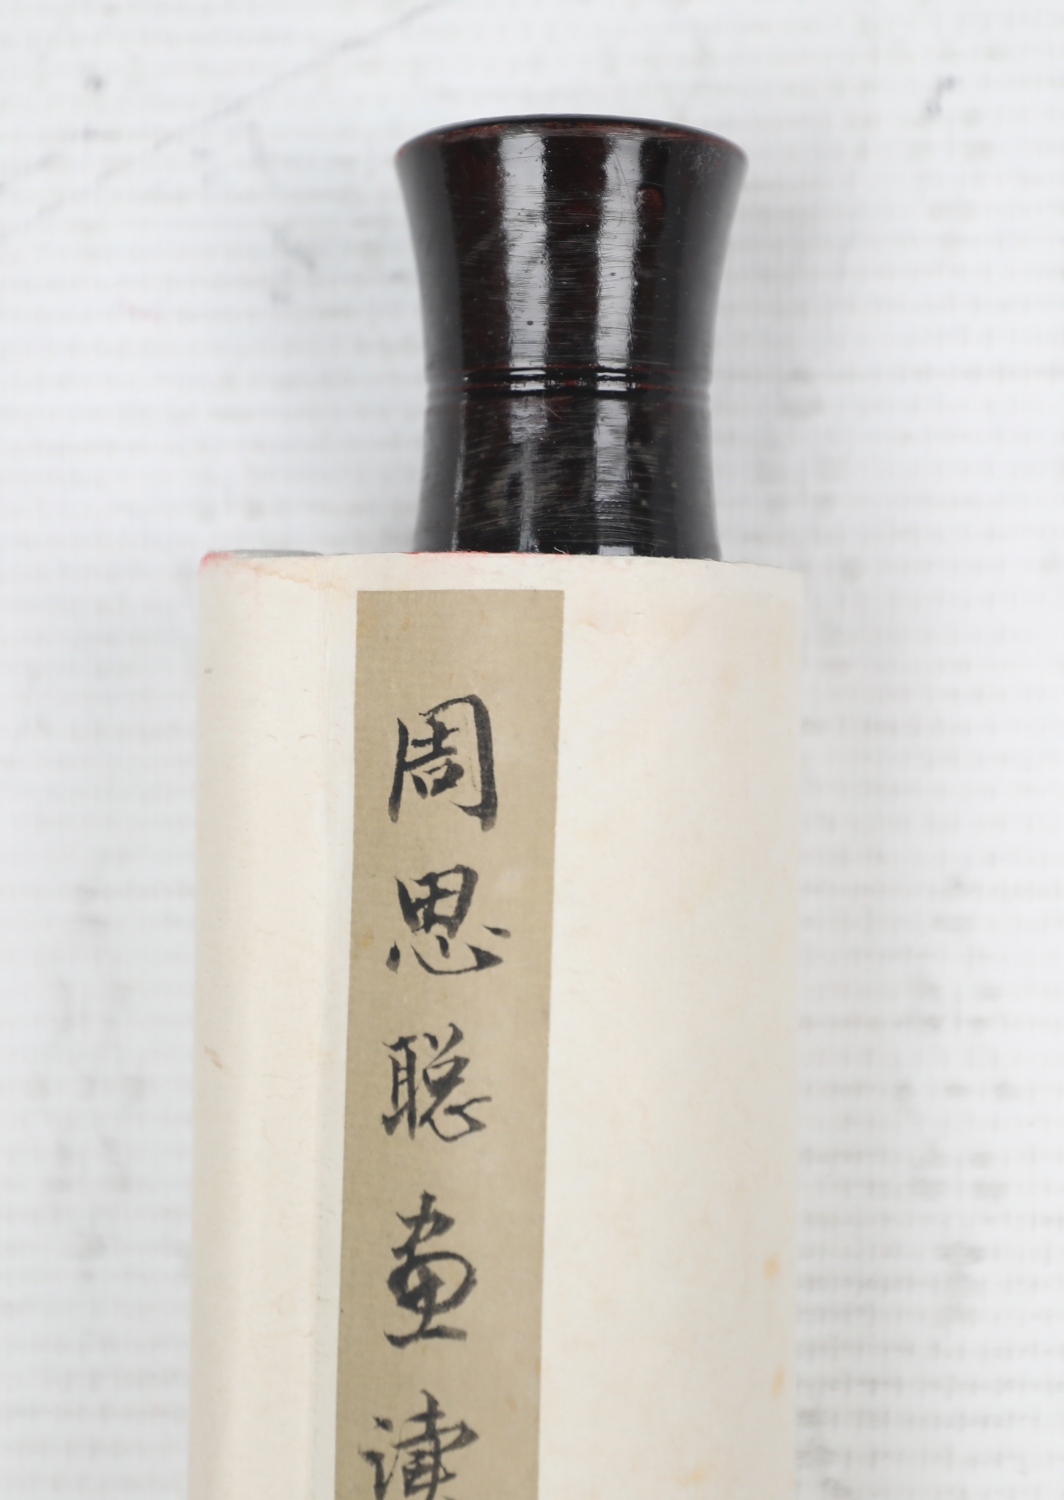 周思聪画读